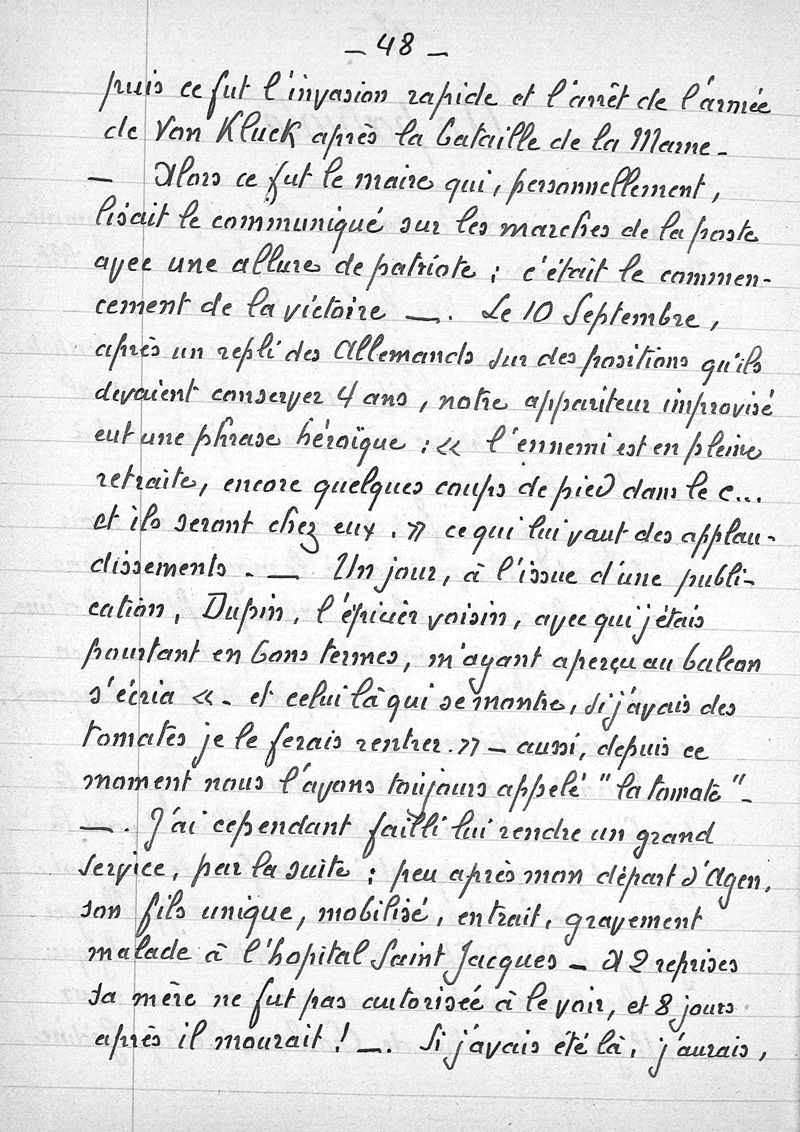 — 48 —
puis ce fut l'invasion rapide et l'arrêt de l'armée
de Von Kluck après la bataille de la Marne —
— Alors ce fut le maire qui, personnellement,
lisait le communiqué sur les marches de la poste
avec une allure de patriote ; c'était le commen-
cement de la victoire —. Le 10 Septembre,
après un repli des Allemands sur des positions qu'ils
devaient conserver 4 ans, notre appariteur improvisé
eut une phrase héroïque : « l'ennemi est en pleine
retraite, encore quelques coups de pied dans le c...
et ils seront chez eux. » ce qui lui vaut des applau-
dissements. — Un jour, à l'issue d'une publi-
cation, Dupin, l'épicier voisin, avec qui j'étais
pourtant en bons termes, m'ayant aperçu au balcon
s'écria « - et celui là qui se montre, si j'avais des
tomates je le ferais rentrer. » — aussi, depuis ce
moment nous l'avons toujours appelé "la tomate" -
—. J'ai cependant failli lui rendre un grand
service, par la suite ; peu après mon départ d'Agen,
son fils unique, mobilisé, entrait, gravement
malade à l'hopital Saint Jacques — A 2 reprises
sa mère ne fut pas autorisée à le voir, et 8 jours
après il mourait ! —. Si j'avais été là, j'aurais,